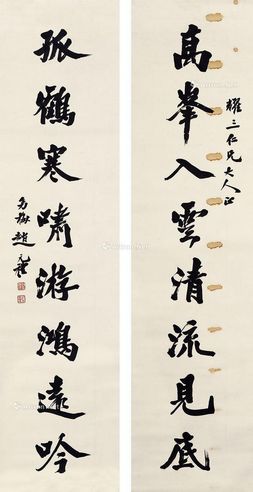 高峯入雲清流見底
耀三仁兄大人正
孤鶴寒嘯游鴻遠吟
趙元禮